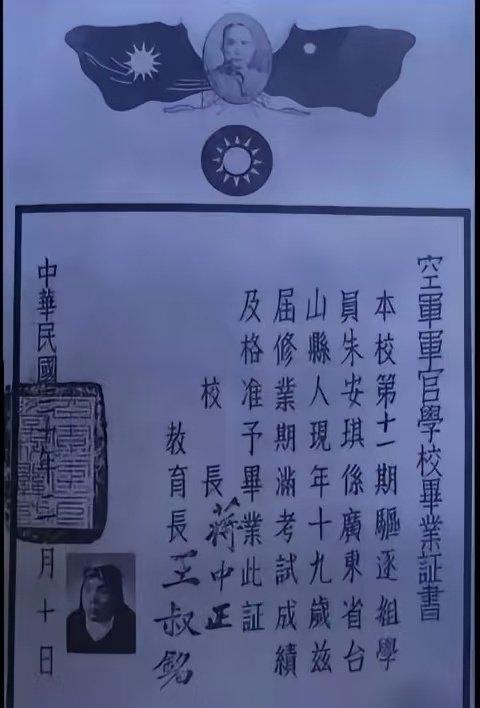 空軍軍官學校畢業証書
本校第十一期驅逐組學
員朱安琪係廣東省台
山縣人現年十九歲茲
届修業期滿考試成績
及格准予畢業此証
校長蔣中正
教育長王叔銘
中華民國二十九年月十日